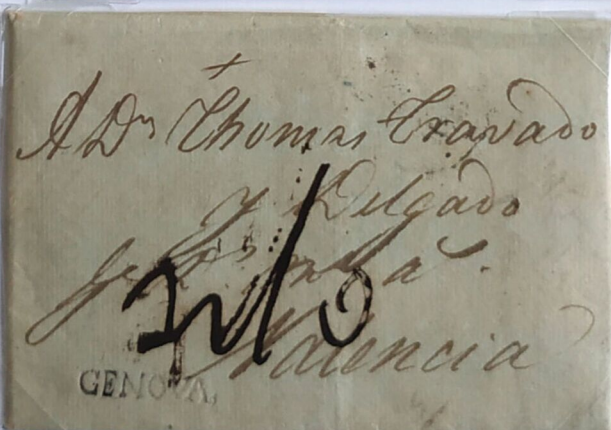 A Dn Thomas Travado
y Delgado
Valencia
GENOVA.